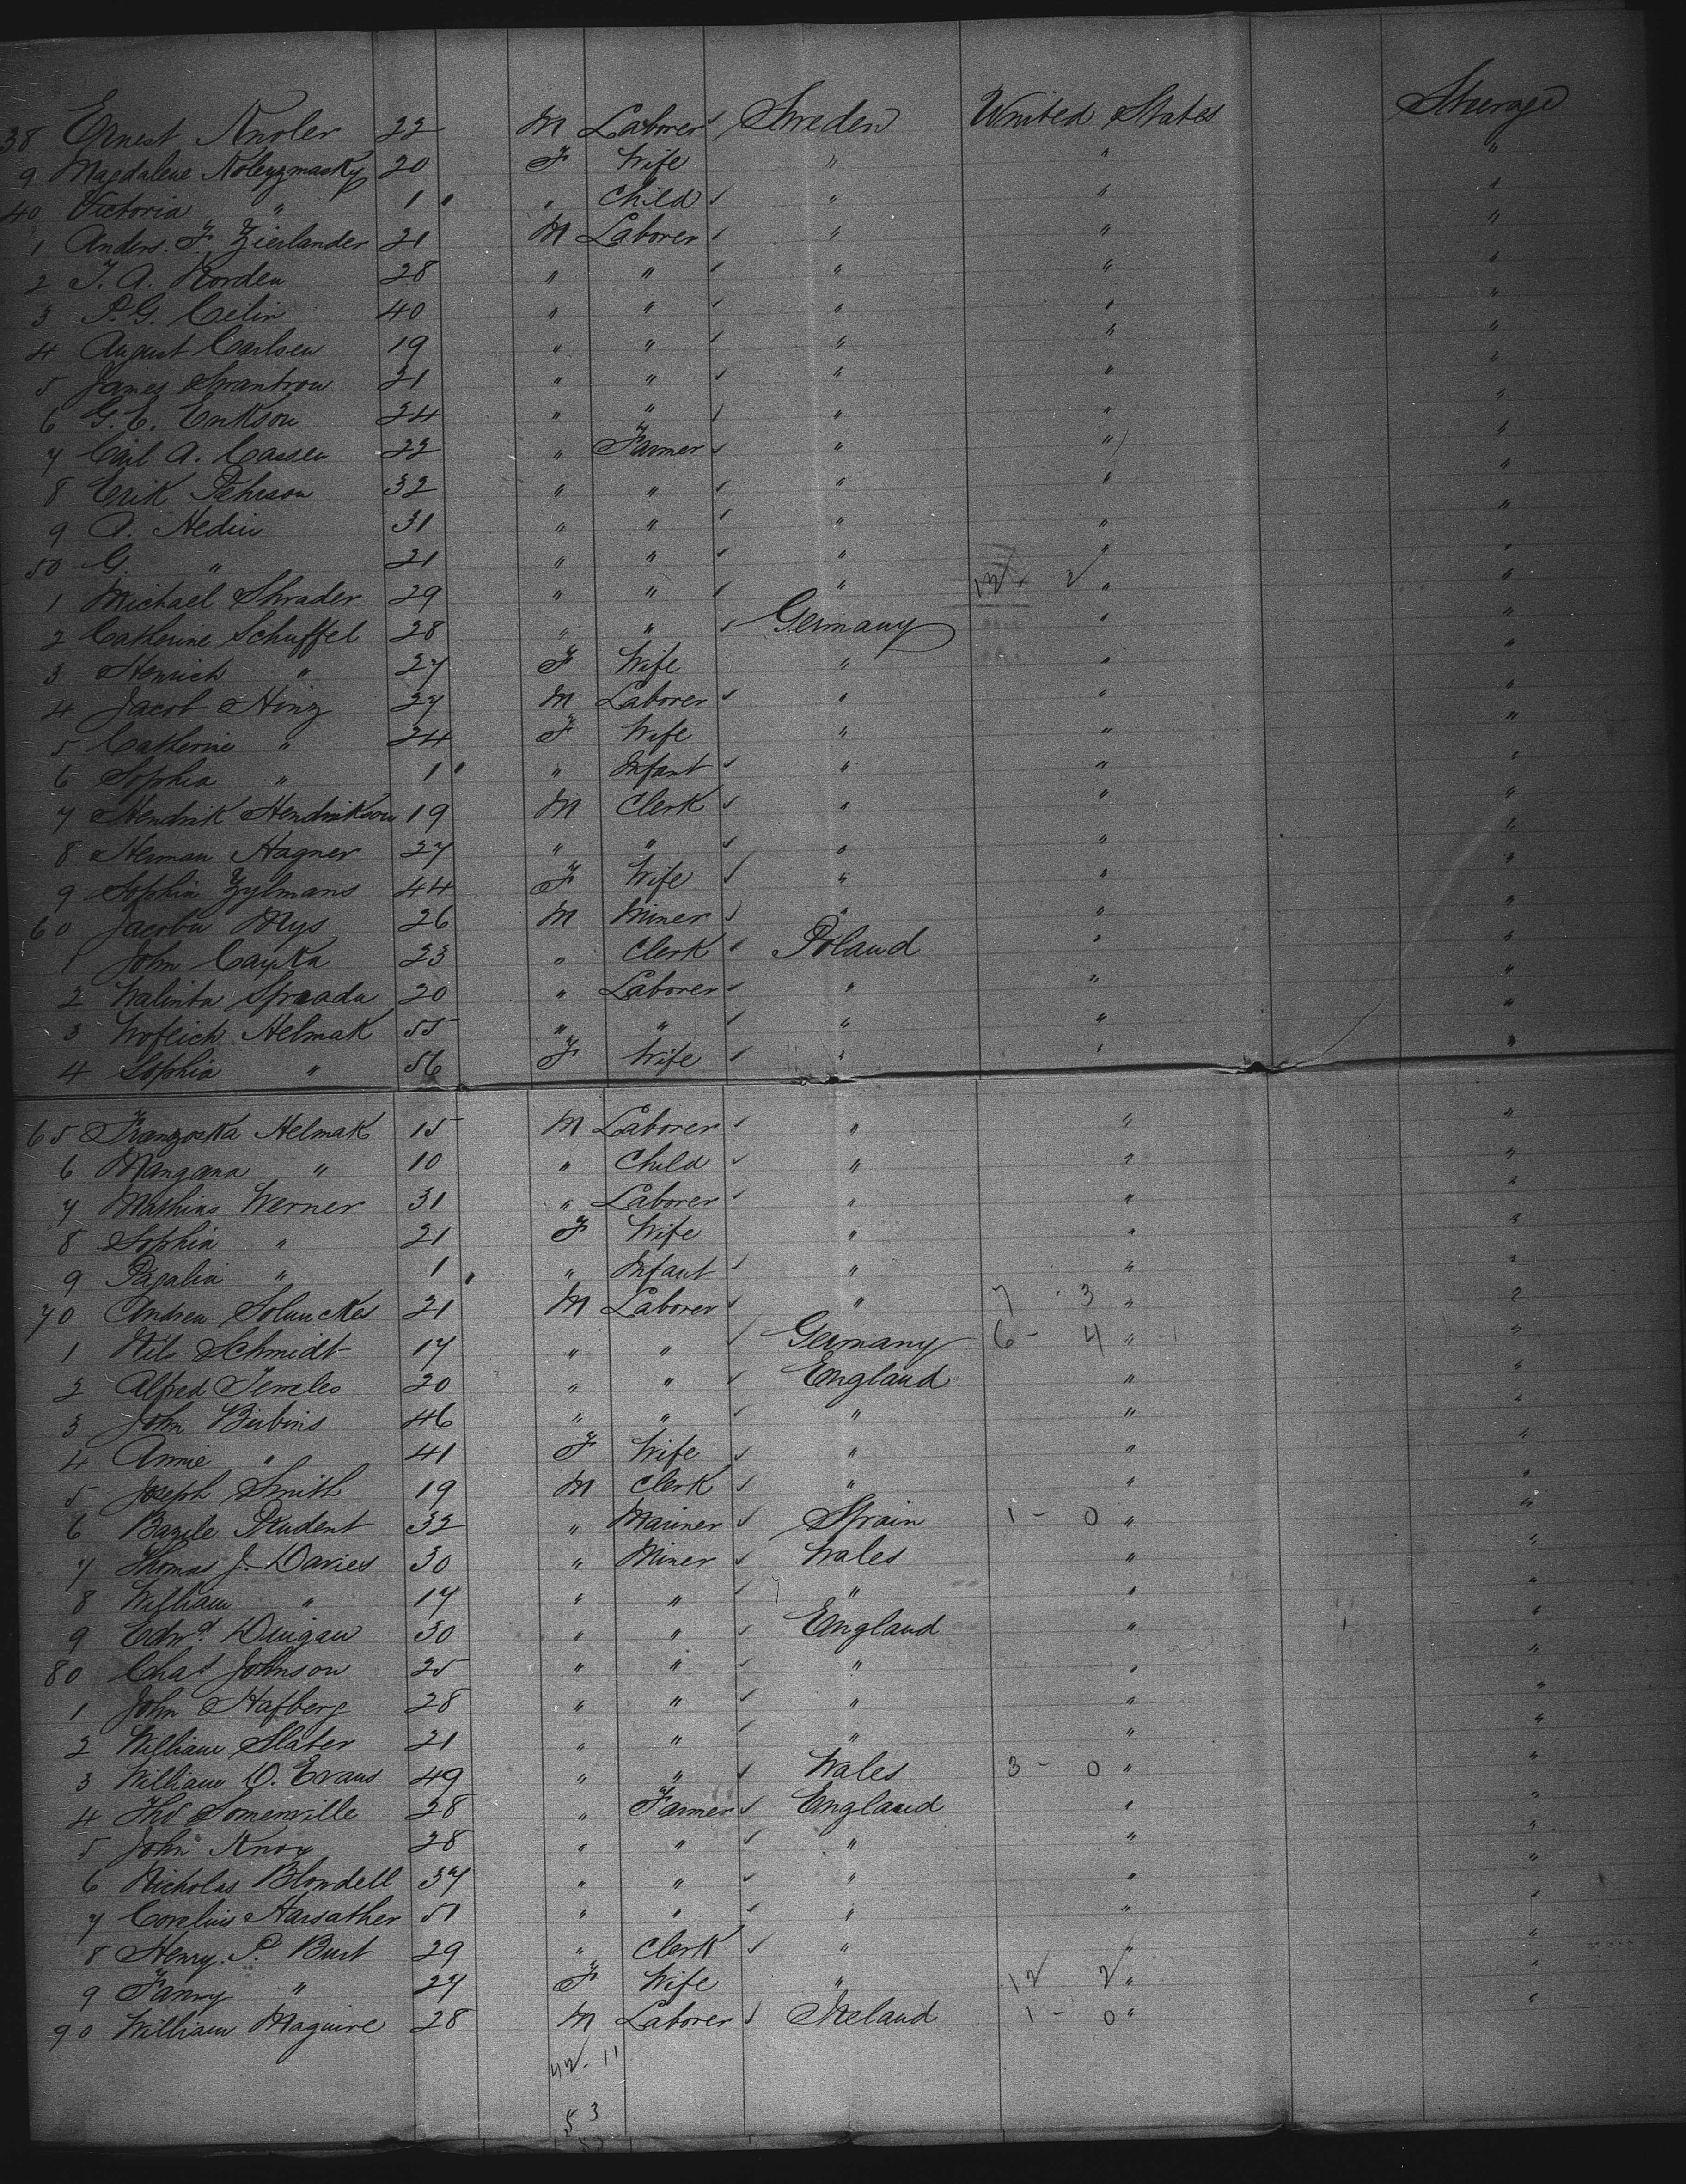 38 Ernest Knoler 22 M Laborer Sweden United States Steerage
9 Magdalene Noleyzmasky 20 F Wife " " "
40 Victoria " 1 " Child " " "
1 Anders. F. Zierlander 21 M Laborer " " "
2 J. A. Norden 28 " " " " "
3 P. G. Celin 40 " " " " "
4 August Carlsen 19 " " " " "
5 James Swantrow 21 " " " " "
6 G. E. Erikson 24 " " " " "
7 Carl A. Cassen 22 " Farmer " " "
8 Erik Pehrson 32 " " " " "
9 A. Hedin 31 " " " " "
50 G. " 21 " " " " "
1 Michael Shrader 29 " " " 12 2 " "
2 Catherine Schuffel 28 " " Germany " "
3 Henrich " 27 F Wife " " "
4 Jacob Hinz 27 M Laborer " " "
5 Catherine " 24 F Wife " " "
6 Sophia " 1 " Infant " " "
7 Hendrik Hendrikson 19 M Clerk " " "
8 Herman Hagner 27 " " " " "
9 Sophia Zylmans 44 F Wife " " "
60 Jacobu Mys 26 M Miner " " "
1 John Cayka 23 " Clerk Poland " "
2 Walinta Spraada 20 " Laborer " " "
3 Wofeich Helmak 55 " " " " "
4 Sophia " 56 F Wife " " "
65 Franzoska Helmak 15 M Laborer " " "
6 Mangana " 10 " Child " " "
7 Mathias Werner 31 " Laborer " " "
8 Sophia " 21 F Wife " " "
9 Pagalia " 1 " Infant " " "
70 Andrea Solunckes 21 M Laborer " 7 - 3 " "
1 Nils Schmidt 17 " " Germany 6 - 4 " "
2 Alfred Temeles 20 " " England " "
3 John Bubins 46 " " " " "
4 Annie " 41 F Wife " " "
5 Joseph Smith 19 M Clerk " " "
6 Bazile Prudent 32 " Mariner Spain 1 - 0 " "
7 Thomas J. Davies 30 " Miner Wales " "
8 William " 17 " " " " "
9 Edwd. Duigan 30 " " England " "
80 Chas Johnson 25 " " " " "
1 John Hafberg 28 " " " " "
2 William Slater 21 " " " " "
3 William O. Evans 49 " " Wales 3 - 0 " "
4 Thos Somerville 28 " Farmer England " "
5 John Knox 28 " " " " "
6 Nicholas Blondell 37 " " " " "
7 Corelius Harsather 51 " " " " "
8 Henry. P. Burt 29 " Clerk " " "
9 Fanny " 27 F Wife " 12 2 " "
90 William Maguire 28 M Laborer Ireland 1 - 0 " "
42 - 11
53